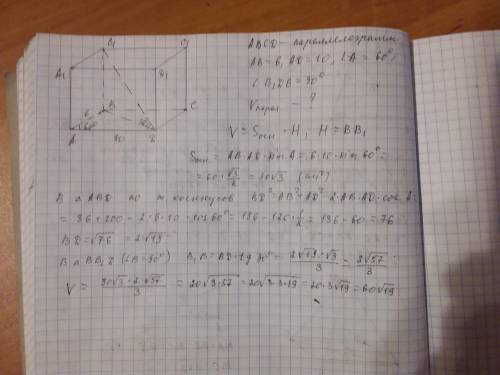 ABCD - параллелограмм
AB = 6, AD = 10, ∠A = 60°,
∠B₁DB = 30°
Vпарал - ?
V = Sосн · H, H = BB₁
Sосн = AB·AD·sin A = 6·10·sin 60° =
= 60·√3/2 = 30√3 (см²)
В △ABD по т косинусов BD² = AB² + AD² - 2·AB·AD·cos A =
= 36 + 100 - 2·6·10·cos 60° = 136 - 120·1/2 = 136 - 60 = 76
BD = √76 = 2√19
В △BB₁D (∠B = 90°) B₁B = BD·tg 30° = 2√19·√3/3 = 2√57/3
V = 30√3·2·√57/3 = 20√3·57 = 20√3·3·19 = 20·3√19 = 60√19
B₁
C₁
A₁
D₁
6
B
C
60°
30°
A
10
D